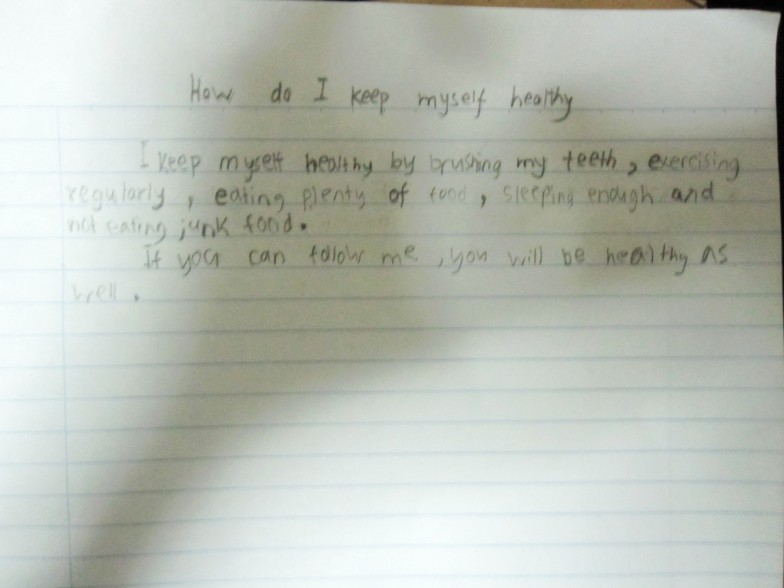 How do I keep myself healthy
I keep myself healthy by brushing my teeth, exercising
regularly, eating plenty of food, sleeping enough and
not eating junk food.
If you can follow me, you will be healthy as
well.